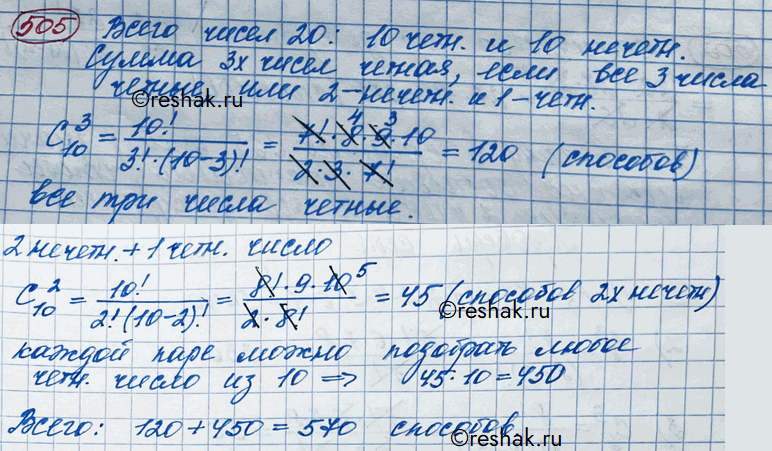 505 Всего чисел 20: 10 четн. и 10 нечетн.
Сумма 3х чисел четная, если все 3 числа
четные или 2-нечетн. и 1-четн.
©reshak.ru
C₁₀³ = 10! / 3!·(10-3)! = 7!·8·9·10 / 2·3·7! = 120 (способов)
4 3
все три числа четные.
2 нечетн. + 1 четн. число
C₁₀² = 10! / 2!(10-2)! = 8!·9·10 / 2·8! = 45 (способов 2х нечетн)
5
©reshak.ru
каждой паре можно подобрать любое
четн. число из 10 => 45·10=450
Всего: 120+450=570 способов
©reshak.ru